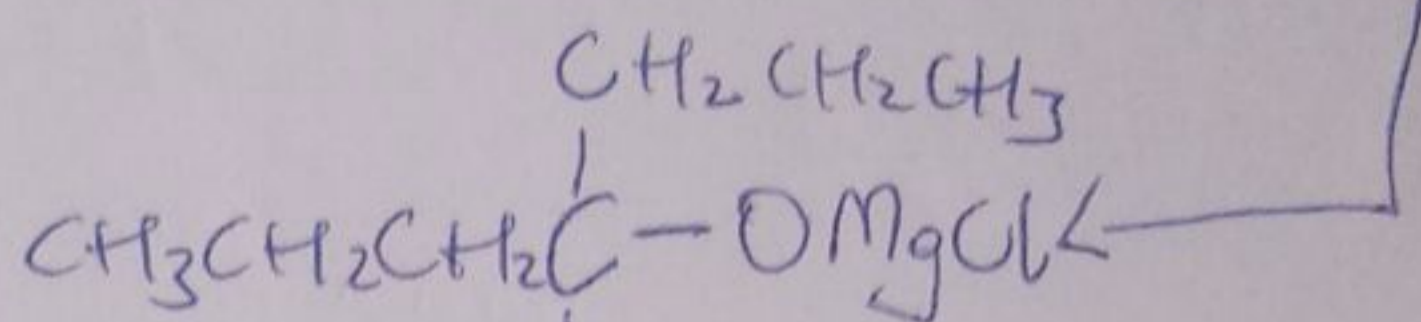 CH₂CH₂CH₃
CH₃CH₂CH₂C-OMgCl